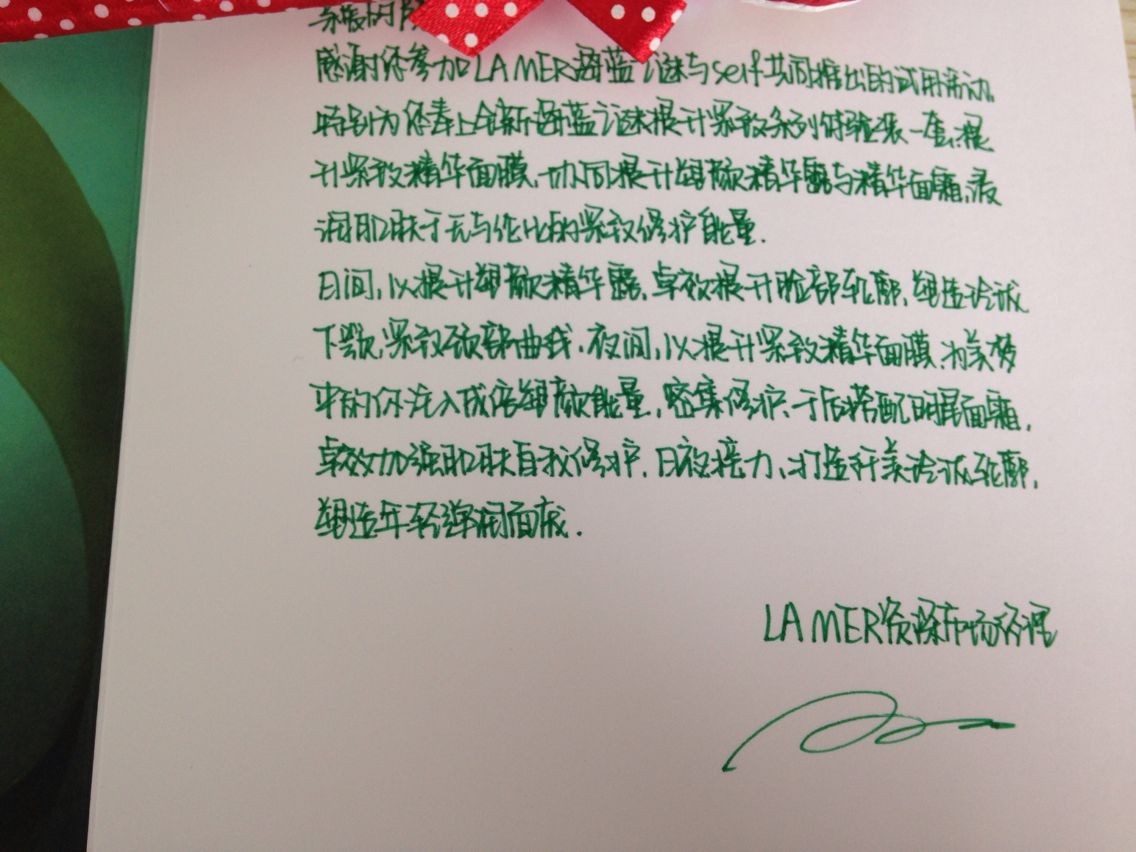 亲爱的
感谢您参加LA MER海蓝之谜与self共同推出的试用活动,
特别为您奉上全新海蓝之谜提升紧致系列体验装一套,提
升紧致精华面膜,协同提升塑颜精华露与精华面霜,浸
润肌肤于无与伦比的紧致修护能量.
日间,以提升塑颜精华露,卓效提升脸部轮廓,塑造玲珑
下颚,紧致颈部曲线.夜间,以提升紧致精华面膜,为美梦
中的你注入成倍塑颜能量,密集修护,于后搭配明星面霜,
卓效加强肌肤自我修护,日夜接力,打造纤美玲珑轮廓,
塑造年轻弹润面庞.
LA MER资深市场经理